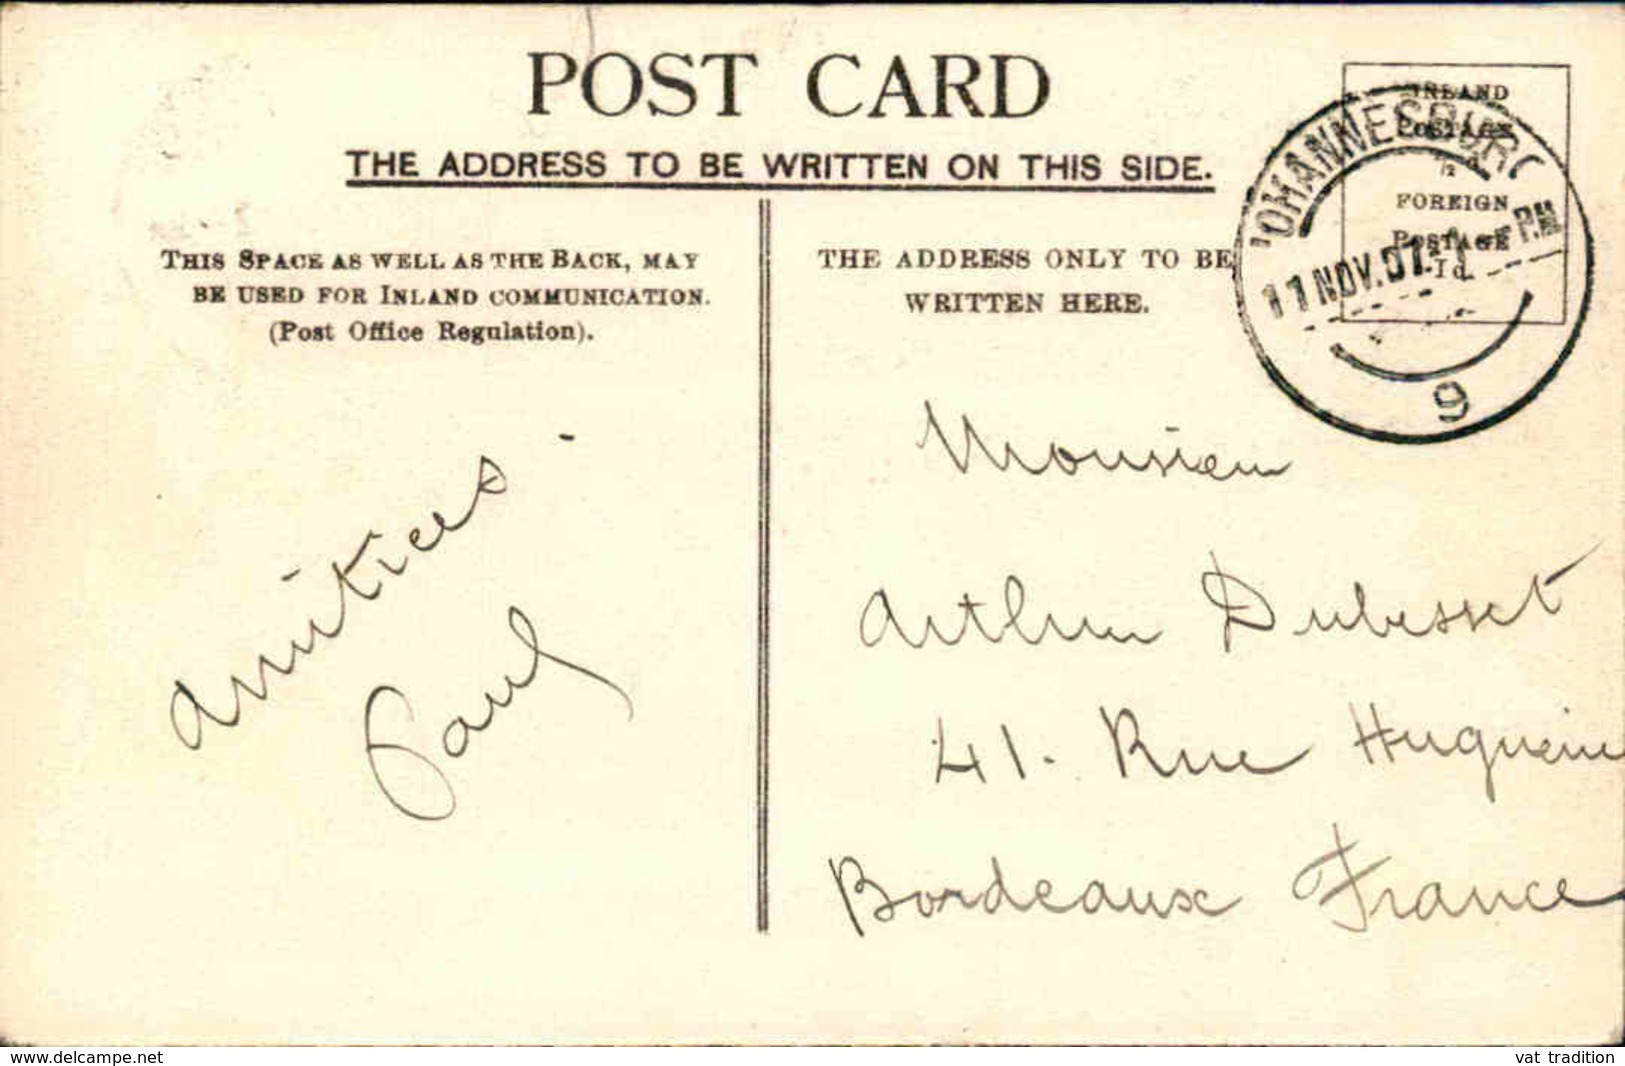 POST CARD
THE ADDRESS TO BE WRITTEN ON THIS SIDE.
THIS SPACE AS WELL AS THE BACK, MAY
BE USED FOR INLAND COMMUNICATION.
(Post Office Regulation).
THE ADDRESS ONLY TO BE
WRITTEN HERE.
INLAND
POSTAGE
½d
FOREIGN
POSTAGE
1d.
JOHANNESBURG
11 NOV. 07. PM
9
Amitiées
Paul
Monsieur
Arthur Dubesset
41. Rue Huguerie
Bordeaux France
www.delcampe.net
vat tradition